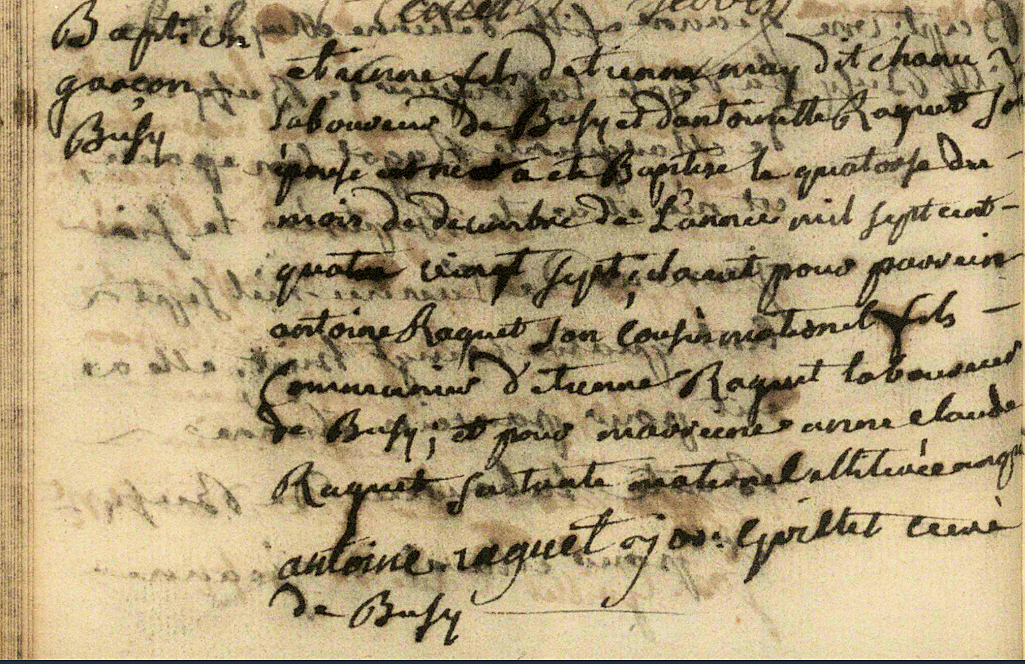 Baptism
garçon
Busy
etienne fils d'etienne may dit chanu
laboureur de Busy et d'antoinette Raquet son
épouse est né a eté Baptise le quatorse du
mois de decembre de L'année mil sept cent
quatre vingt sept; elevent pour parrein
antoine Raquet son cousin maternel fils
Communier d'etienne Raquet laboureur
de Busy, et pour marreine anne claude
Raquet sa tante maternel
antoine raquet Guillet curé
de Busy